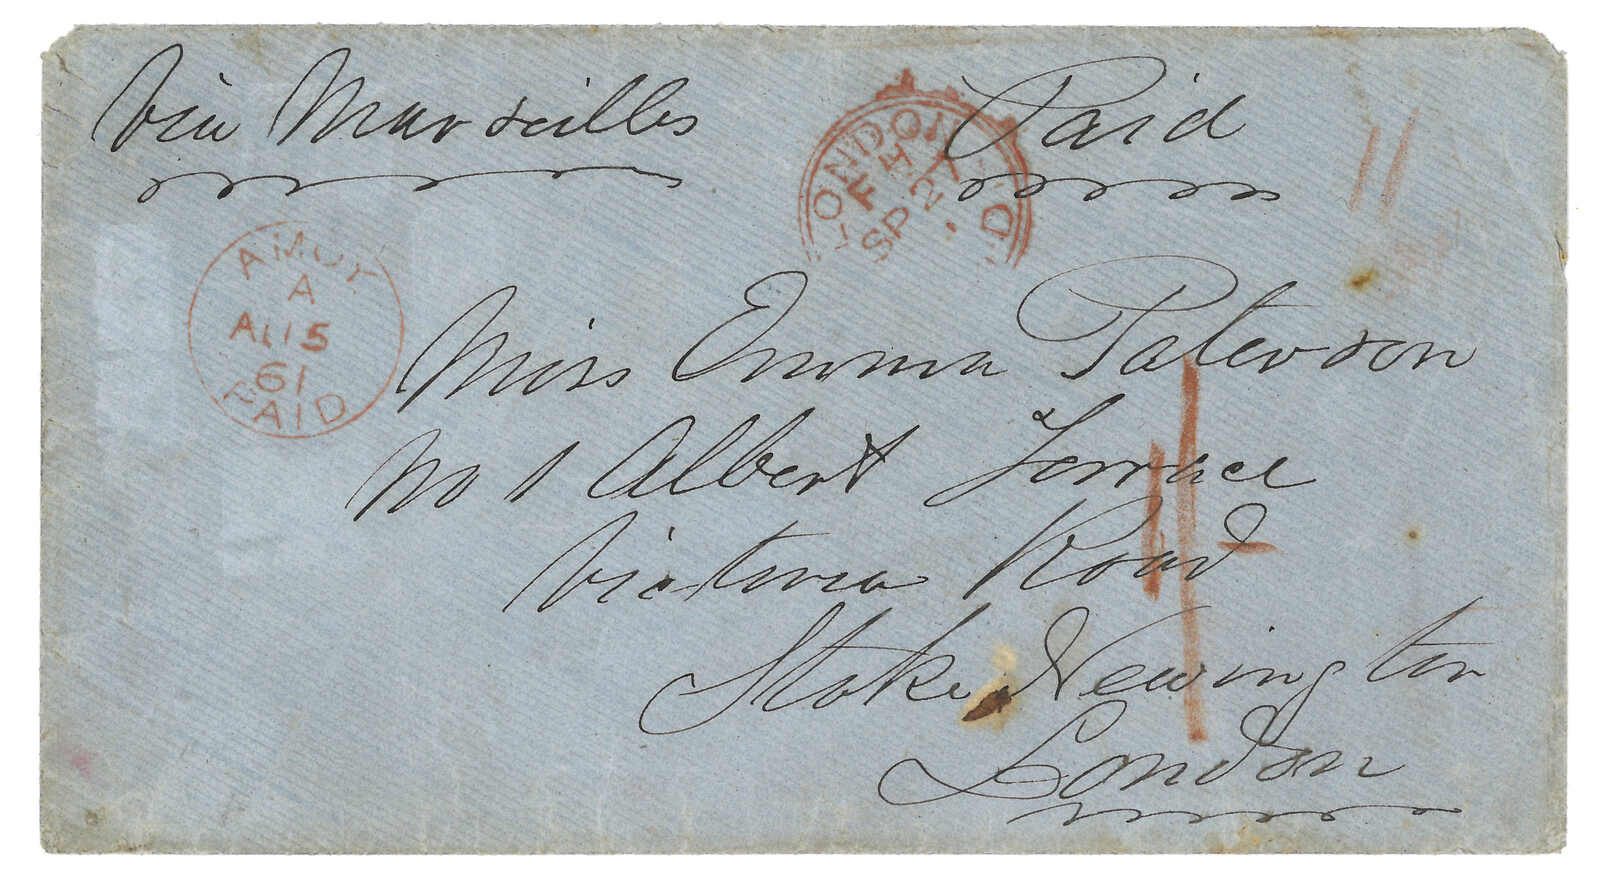 Via Marseilles Paid
LONDON
F H
SP 27
AMOY
A
AU 5
61
PAID
Miss Emma Paterson
No 1 Albert Terrace
Victoria Road
Stoke Newington
London